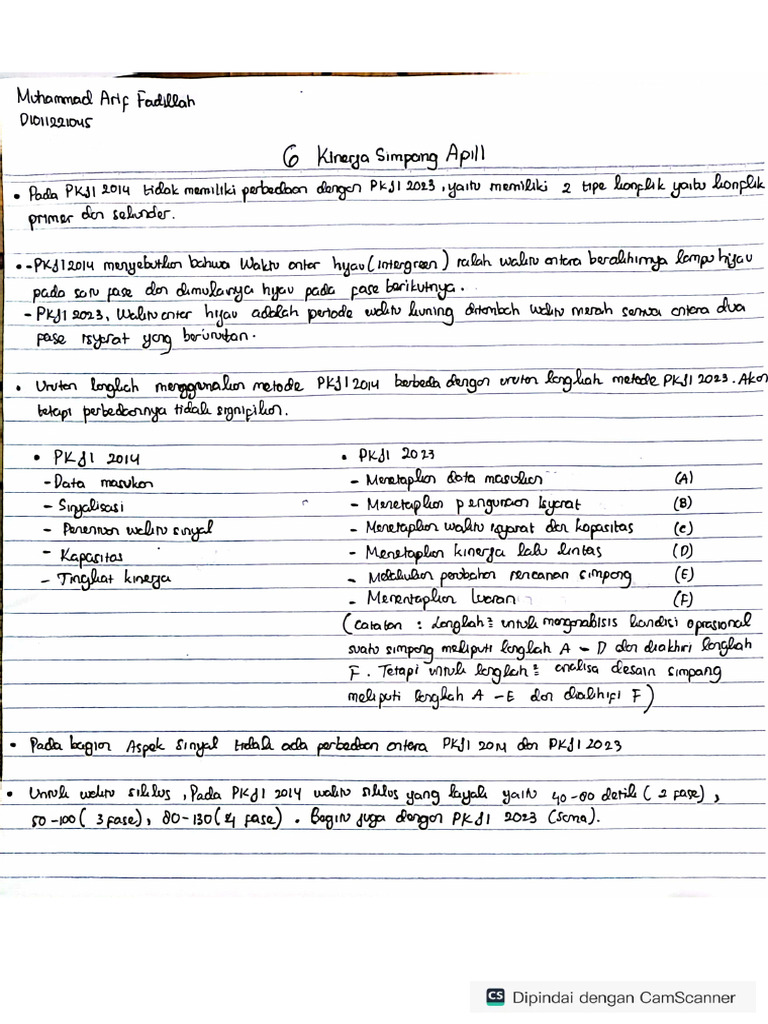 Muhammad Arif Fadillah
D1011221045
6 Kinerja Simpang Apill
• Pada PKJI 2014 tidak memiliki perbedaan dengan PKJI 2023, yaitu memiliki 2 tipe konflik yaitu konflik
primer dan sekunder.
• - PKJI 2014 menyebutkan bahwa Waktu antar hijau (intergreen) ialah waktu antara beralihnya lampu hijau
pada satu fase dan dimulainya hijau pada fase berikutnya.
- PKJI 2023, Waktu antar hijau adalah periode waktu kuning ditambah waktu merah semua antara dua
fase isyarat yang berurutan.
• Urutan langkah menggunakan metode PKJI 2014 berbeda dengan urutan langkah metode PKJI 2023. Akan
tetapi perbedaannya tidak signifikan.
• PKJI 2014
- Data masukan
- Sinyalisasi
- Penentuan waktu sinyal
- Kapasitas
- Tingkat kinerja
• PKJI 2023
- Menetapkan data masukan (A)
- Menetapkan penggunaan isyarat (B)
- Menetapkan waktu isyarat dan kapasitas (C)
- Menetapkan kinerja lalu lintas (D)
- Melakukan perubahan rencanan simpang (E)
- Menentapkan luaran (F)
(Catatan : Langkah² untuk menganalisis kondisi oprasional
suatu simpang meliputi langkah A - D dan diakhri langkah
F. Tetapi untuk langkah² analisa desain simpang
meliputi langkah A - E dan diakhiri F)
• Pada bagian Aspek Sinyal tidak ada perbedaan antara PKJI 2014 dan PKJI 2023
• Untuk waktu siklus, Pada PKJI 2014 waktu siklus yang layak yaitu 40-80 detik (2 fase),
50-100 (3 fase), 80-130 (4 fase). Begitu juga dengan PKJI 2023 (Sama).
CS Dipindai dengan CamScanner